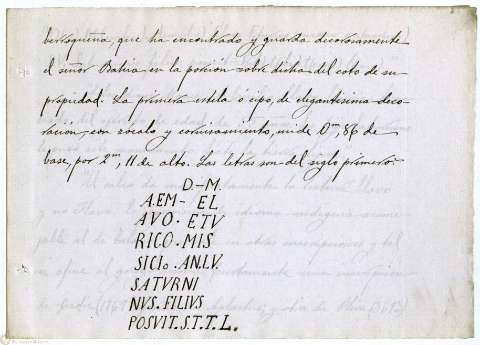 berroqueña, que ha encontrado y guarda decorosamente
el señor Bahia en la porcion sobre dicha del coto de su
propiedad. La primera estela ó cipo, de elegantisima deco-
racion, con zócalo y cornisamento, mide 0m, 86 de
base, por 2m, 11 de alto. Las letras son del siglo primero:
D-M.
A.EM-EL
AVO-ETV
RICO.MIS
SICIo.AN.LV.
SATVRNI
NVS.FILIVS
POSVIT.S.T.T.L.